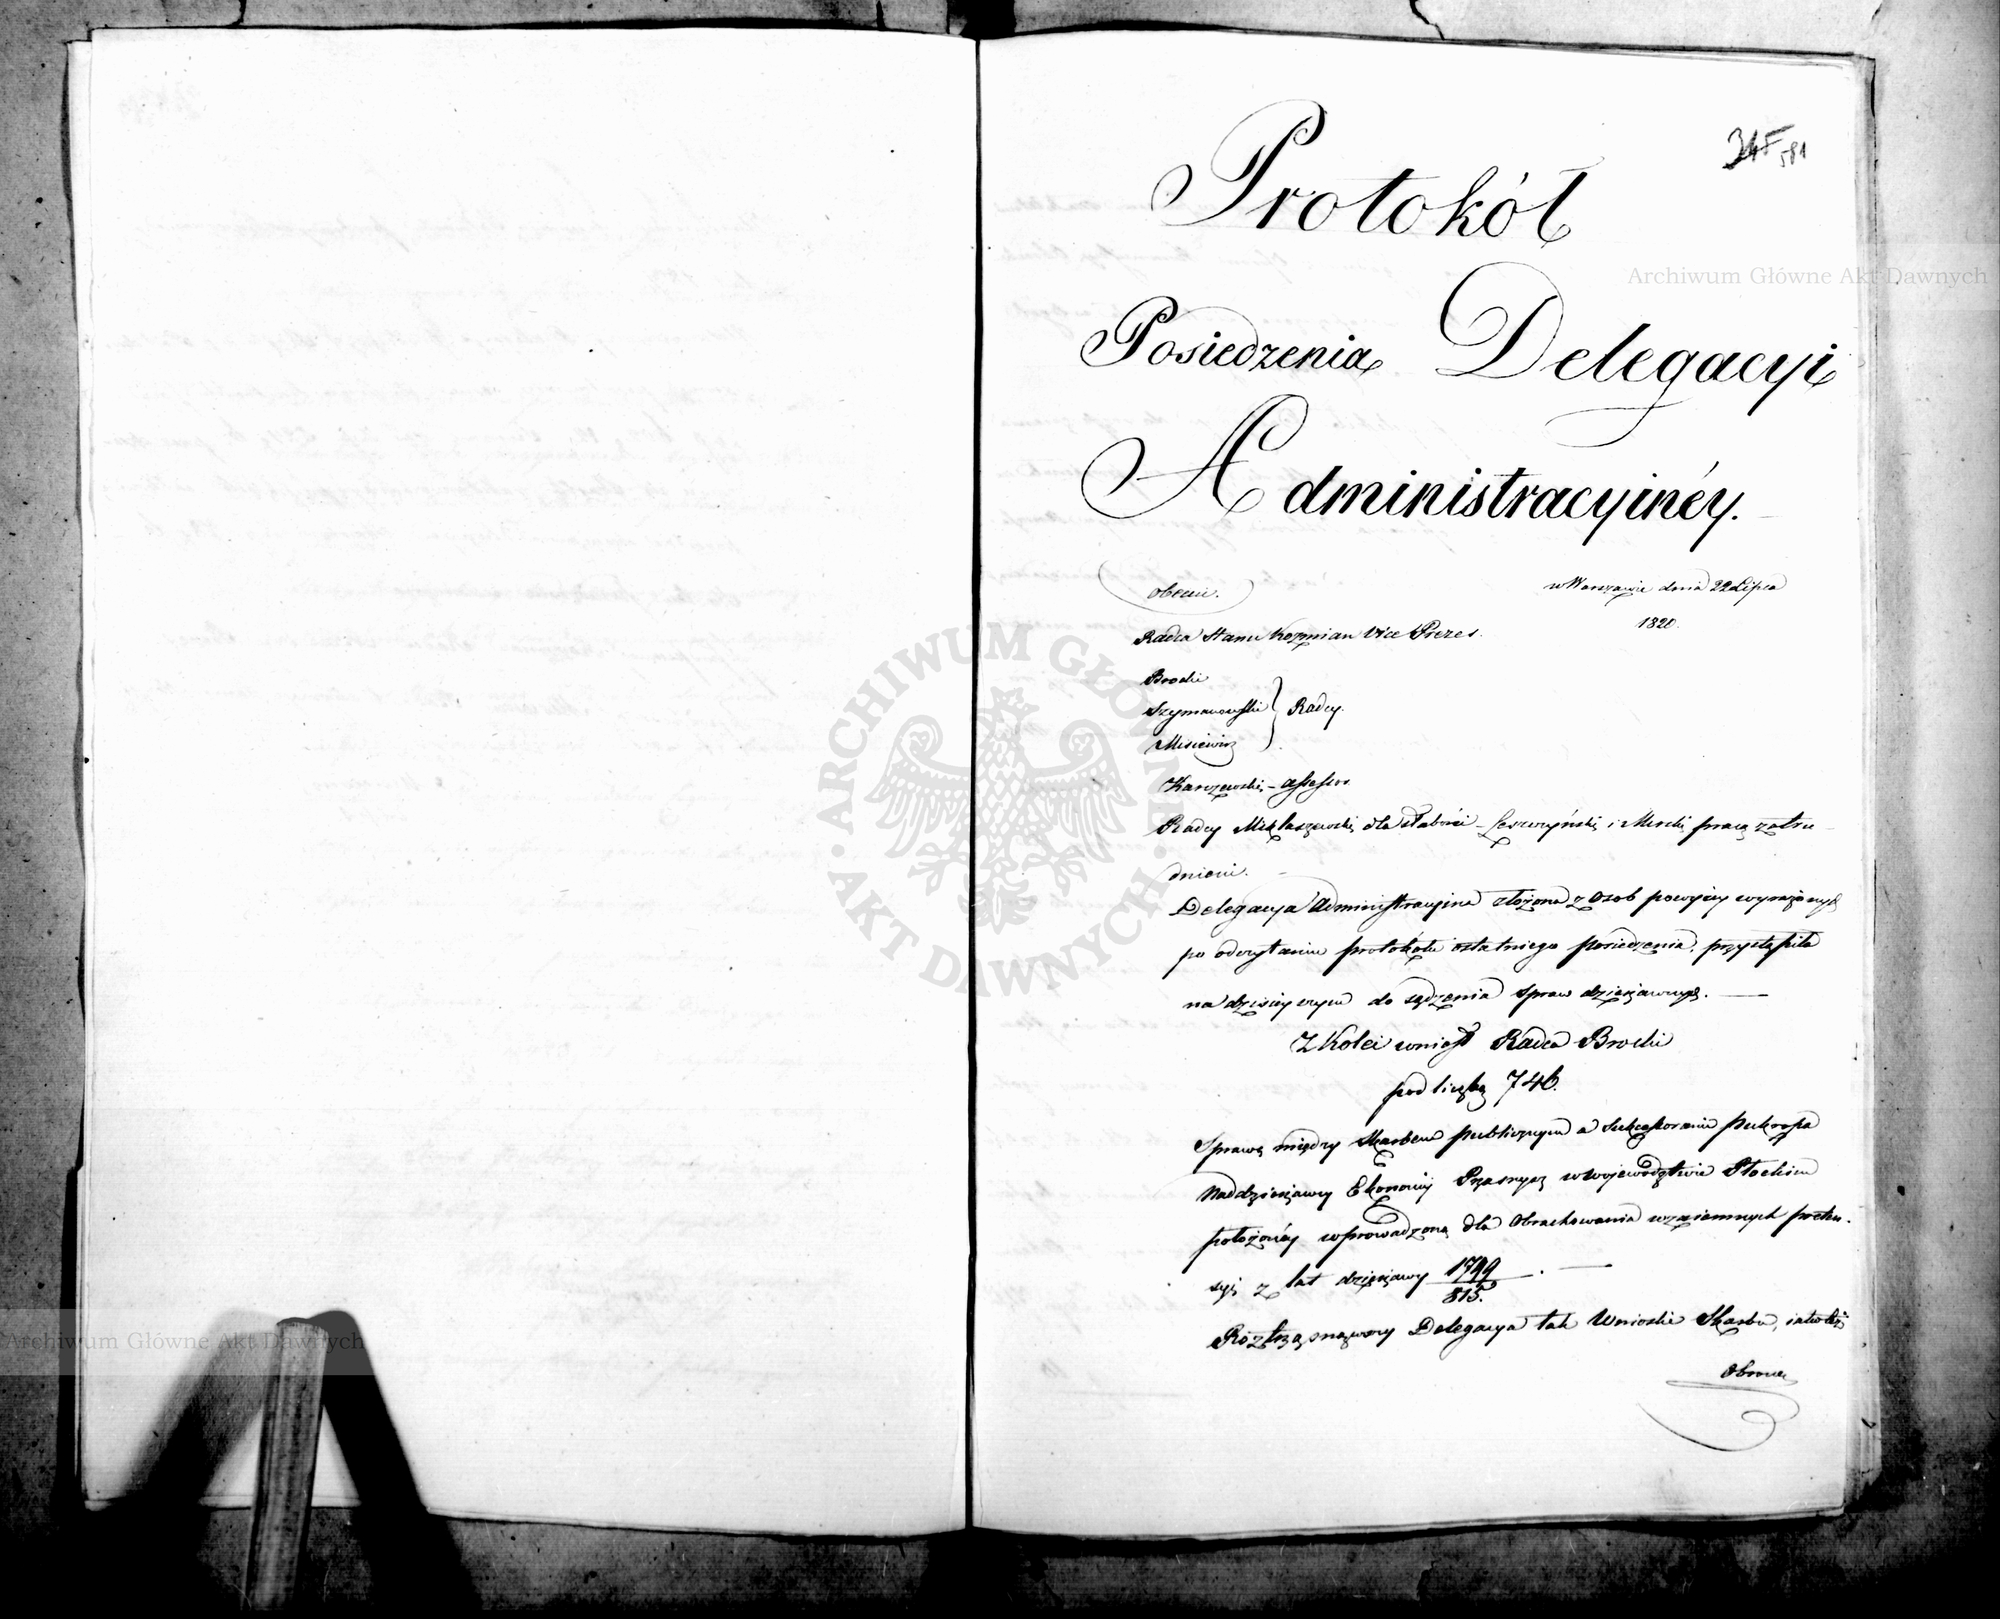 345 581
Protokół
Posiedzenia Delegacyi
Administracyinéy.
Obecni.
w Warszawie dnia 22 Lipca
1820.
Radca Stanu Kozmian Vice Prezes.
Brocki
Szymanowski
Misiewicz
Radcy.
Karczewski – Assessor
Radcy Miklaszewski dla słabości – Leszczyński i Mirski pracą zatru-
dnieni.
Delegacya Administracyina złożona z Osob powyżey wyrażonych
po odczytaniu protokółu ostatniego posiedzenia, przystąpiła
na dzisieyszym do sądzenia spraw dzierżawnych. —
Z Kolei wniosł Radca Brocki
pod liczbą 746.
Sprawę między Skarbem publicznym a Sukcessorami
Naddzierżawcy Ekonomij Przasnysz w Województwie Płockim
położonéy wprowadzoną dla Obrachowania wzaiemnych preten-
syi z lat dzierżawy 1799/815. —
Roztrząsnąwszy Delegacya tak Wnioski Skarbu, iako też
Obronę
Archiwum Główne Akt Dawnych
ARCHIWUM GŁÓWNE AKT DAWNYCH
Archiwum Główne Akt Dawnych